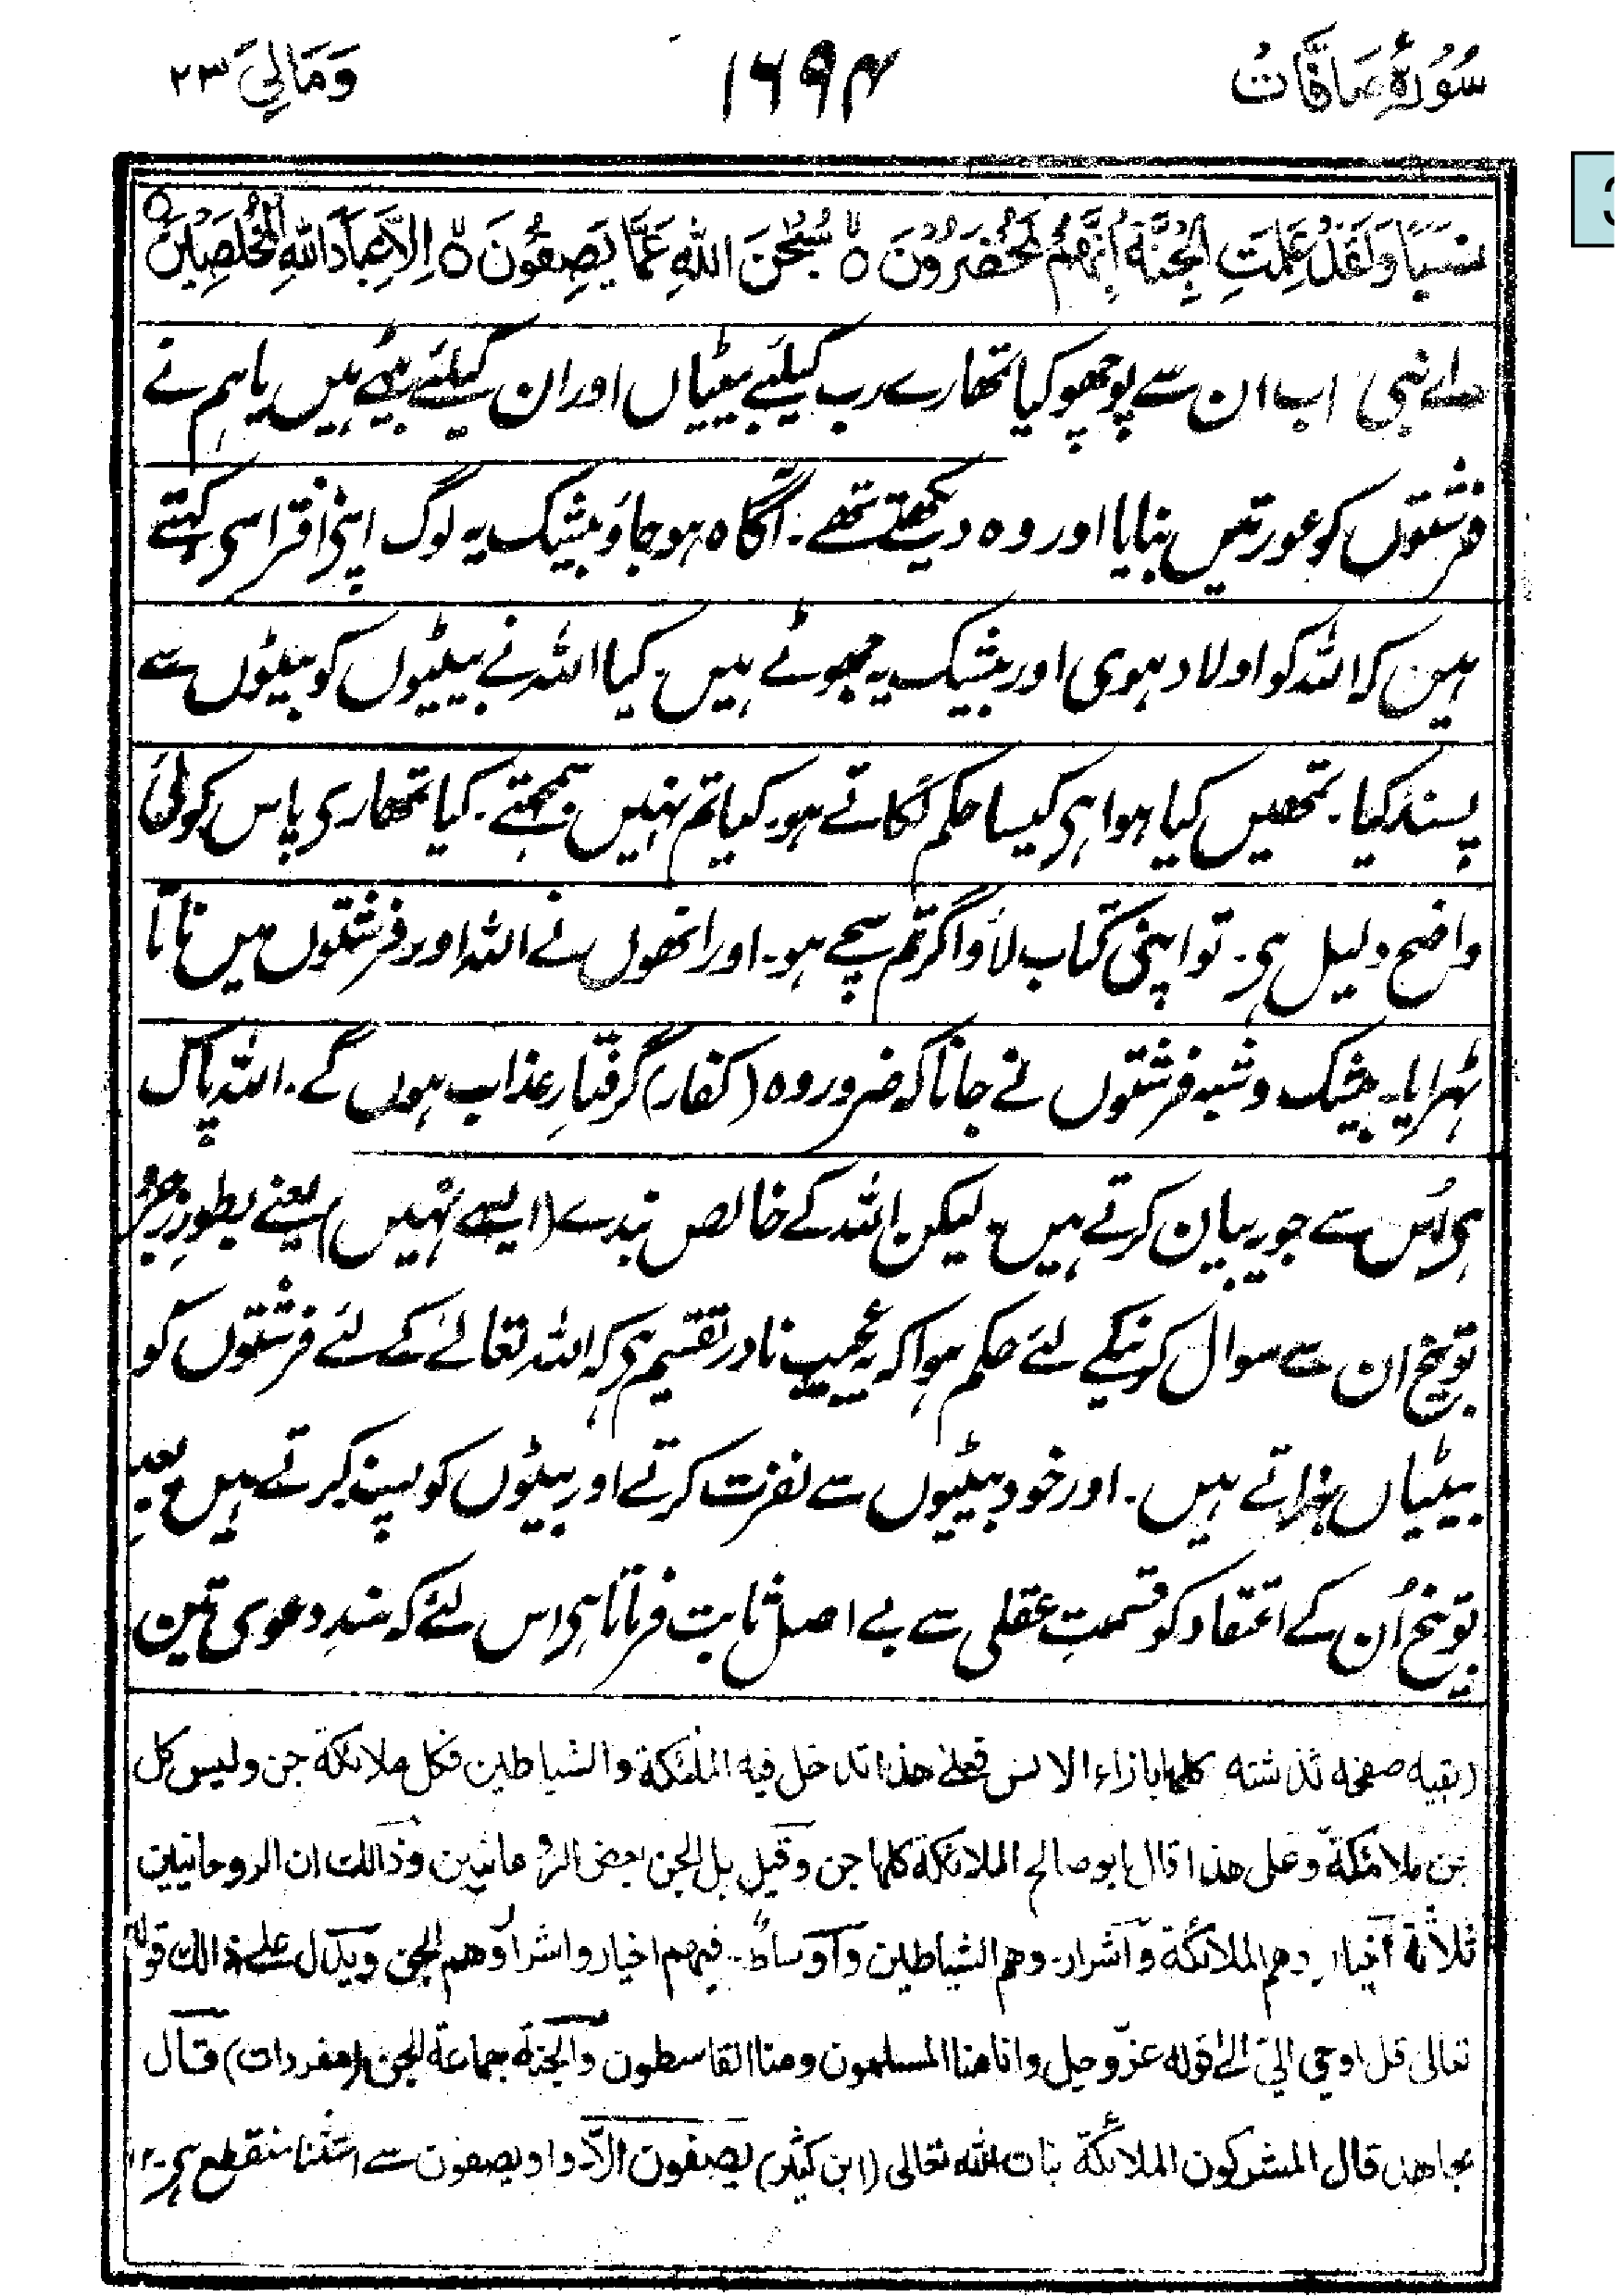 سُوْرَۂ صَافَّات
۱۶۹۴
وَمَالِیَ ۲۳
نَسَبًا وَلَقَدْ عَلِمَتِ الْجِنَّةُ اِنَّهُمْ لَمُحْضَرُوْنَ ۝ سُبْحٰنَ اللّٰهِ عَمَّا یَصِفُوْنَ ۝ اِلَّا عِبَادَ اللّٰهِ الْمُخْلَصِیْنَ ۝
اے نبی اب ان سے پوچھو کیا تمھارے رب کیلئے بیٹیاں اور ان کیلئے بیٹے ہیں یا ہم نے
فرشتوں کو عورتیں بنایا اور وہ دیکھتے تھے۔ آگاہ ہو جاؤ بیشک یہ لوگ اپنی افترا سی کہتے
ہین کہ اللہ کو اولاد ہوی اور بیشک یہ جھوٹے ہیں۔ کیا اللہ نے بیٹیوں کو بیٹوں سے
پسند کیا۔ تمھیں کیا ہوا ہی کیسا حکم لگاتے ہو۔ کیا تم نہیں سمجھتے۔ کیا تمھاری پاس کوئی
واضح دلیل ہی۔ تو اپنی کتاب لاؤ اگر تم سچے ہو۔ اور انھوں نے اللہ اور فرشتوں میں ناتا
ٹہرایا۔ بیشک وشبہ فرشتوں نے جانا کہ ضرور وہ (کفار) گرفتارِ عذاب ہوں گے۔ اللہ پاک
ہی اُس سے جو یہ بیان کرتے ہیں۔ لیکن اللہ کے خالص بندے (ایسے نہیں) یعنے بطور زجر و
توبیخ ان سے سوال کرنیکے لئے حکم ہوا کہ یہ عجیب نادر تقسیم ہی کہ اللہ تعالےٰ کے لئے فرشتوں کو
بیٹیاں ٹہراتے ہیں۔ اور خود بیٹیوں سے نفرت کرتے اور بیٹوں کو پسند کرتے ہیں بعد
توبیخ اُن کے اعتقاد کو قسمتِ عقلی سے بے اصل ثابت فرماتا ہی اس لئے کہ سندِ دعوی تین
(بقیہ صفحہ گذشتہ کلها بازاء الانس فعلے هذا تدخل فیه الملئکة والشیاطین فکل ملائکة جن ولیس کل
جن ملائکة وعلی هذا قال ابو صالح الملائکة کلها جن وقیل بل الجن بعض الروحانیین وذالک ان الروحانیین
ثلاثة اخیار وهم الملائکة واشرار۔ وهم الشیاطین واوساط۔ فیهم اخیار واشرار وهم الجن ویدل علے ذالک قوله
تعالی قل اوحی الیّ الیٰ قوله عزّ وجل وانا منا المسلمون ومنا القاسطون والجنة جماعة الجن (مفردات) قال
مجاهد قال المشرکون الملائکة بنات الله تعالی (ابن کثیر) یصفون الّا۔ واو یصفون سے استثنا منقطع ہی۔ ۱۲